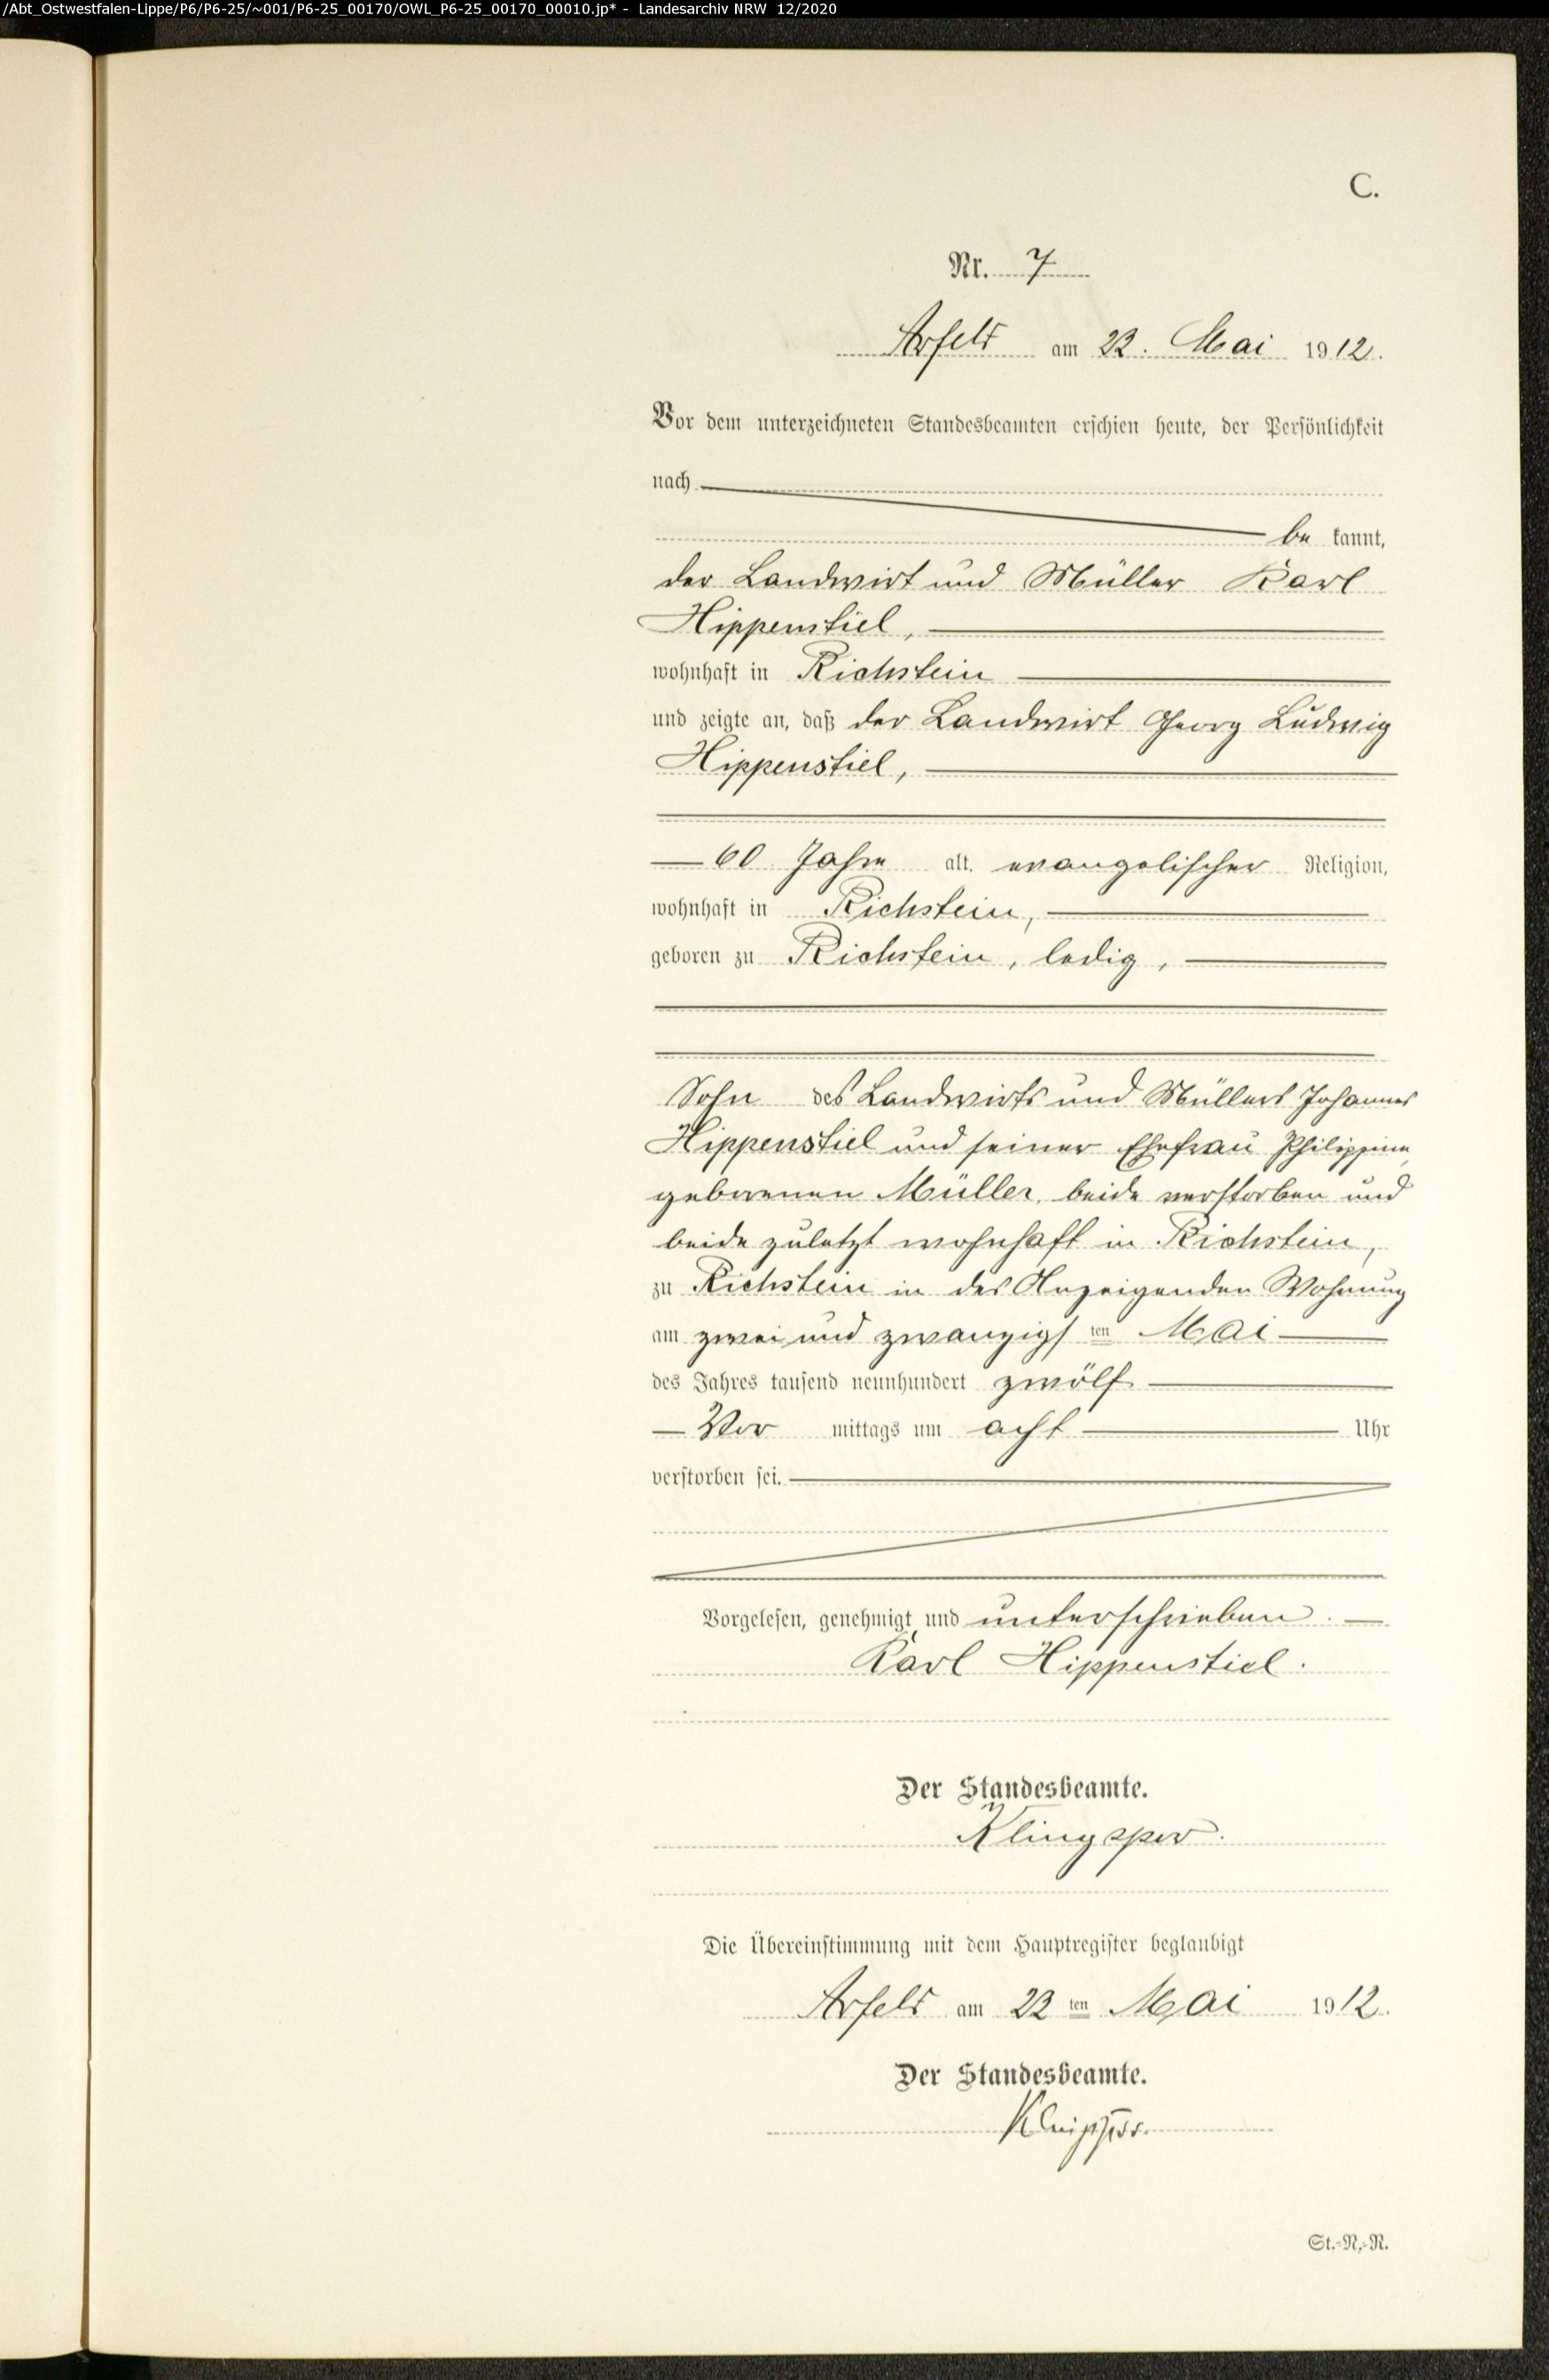 /Abt_Ostwestfalen-Lippe/P6/P6-25/~001/P6-25_00170/OWL_P6-25_00170_00010.jp* - Landesarchiv NRW 12/2020
C.
Nr. 7
Arfeld am 22. Mai 1912.
Vor dem unterzeichneten Standesbeamten erschien heute, der Persönlichkeit
nach
be kannt,
der Landwirt und Müller Karl
Hippenstiel,
wohnhaft in Richstein
und zeigte an, daß der Landwirt Georg Ludwig
Hippenstiel,
60 Jahre alt, evangelischer Religion,
wohnhaft in Richstein,
geboren zu Richstein, ledig,
Sohn des Landwirts und Müllers Johannes
Hippenstiel und seiner Ehefrau Philippine,
geborenen Müller, beide verstorben und
beide zuletzt wohnhaft in Richstein,
zu Richstein in des Anzeigenden Wohnung
am zwei und zwanzigsten Mai
des Jahres tausend neunhundert zwölf
Vor mittags um acht Uhr
verstorben sei.
Vorgelesen, genehmigt und unterschrieben.
Karl Hippenstiel.
Der Standesbeamte.
Klingspor.
Die Übereinstimmung mit dem Hauptregister beglaubigt
Arfeld am 22 ten Mai 1912.
Der Standesbeamte.
Klingspor.
St.-N.-R.